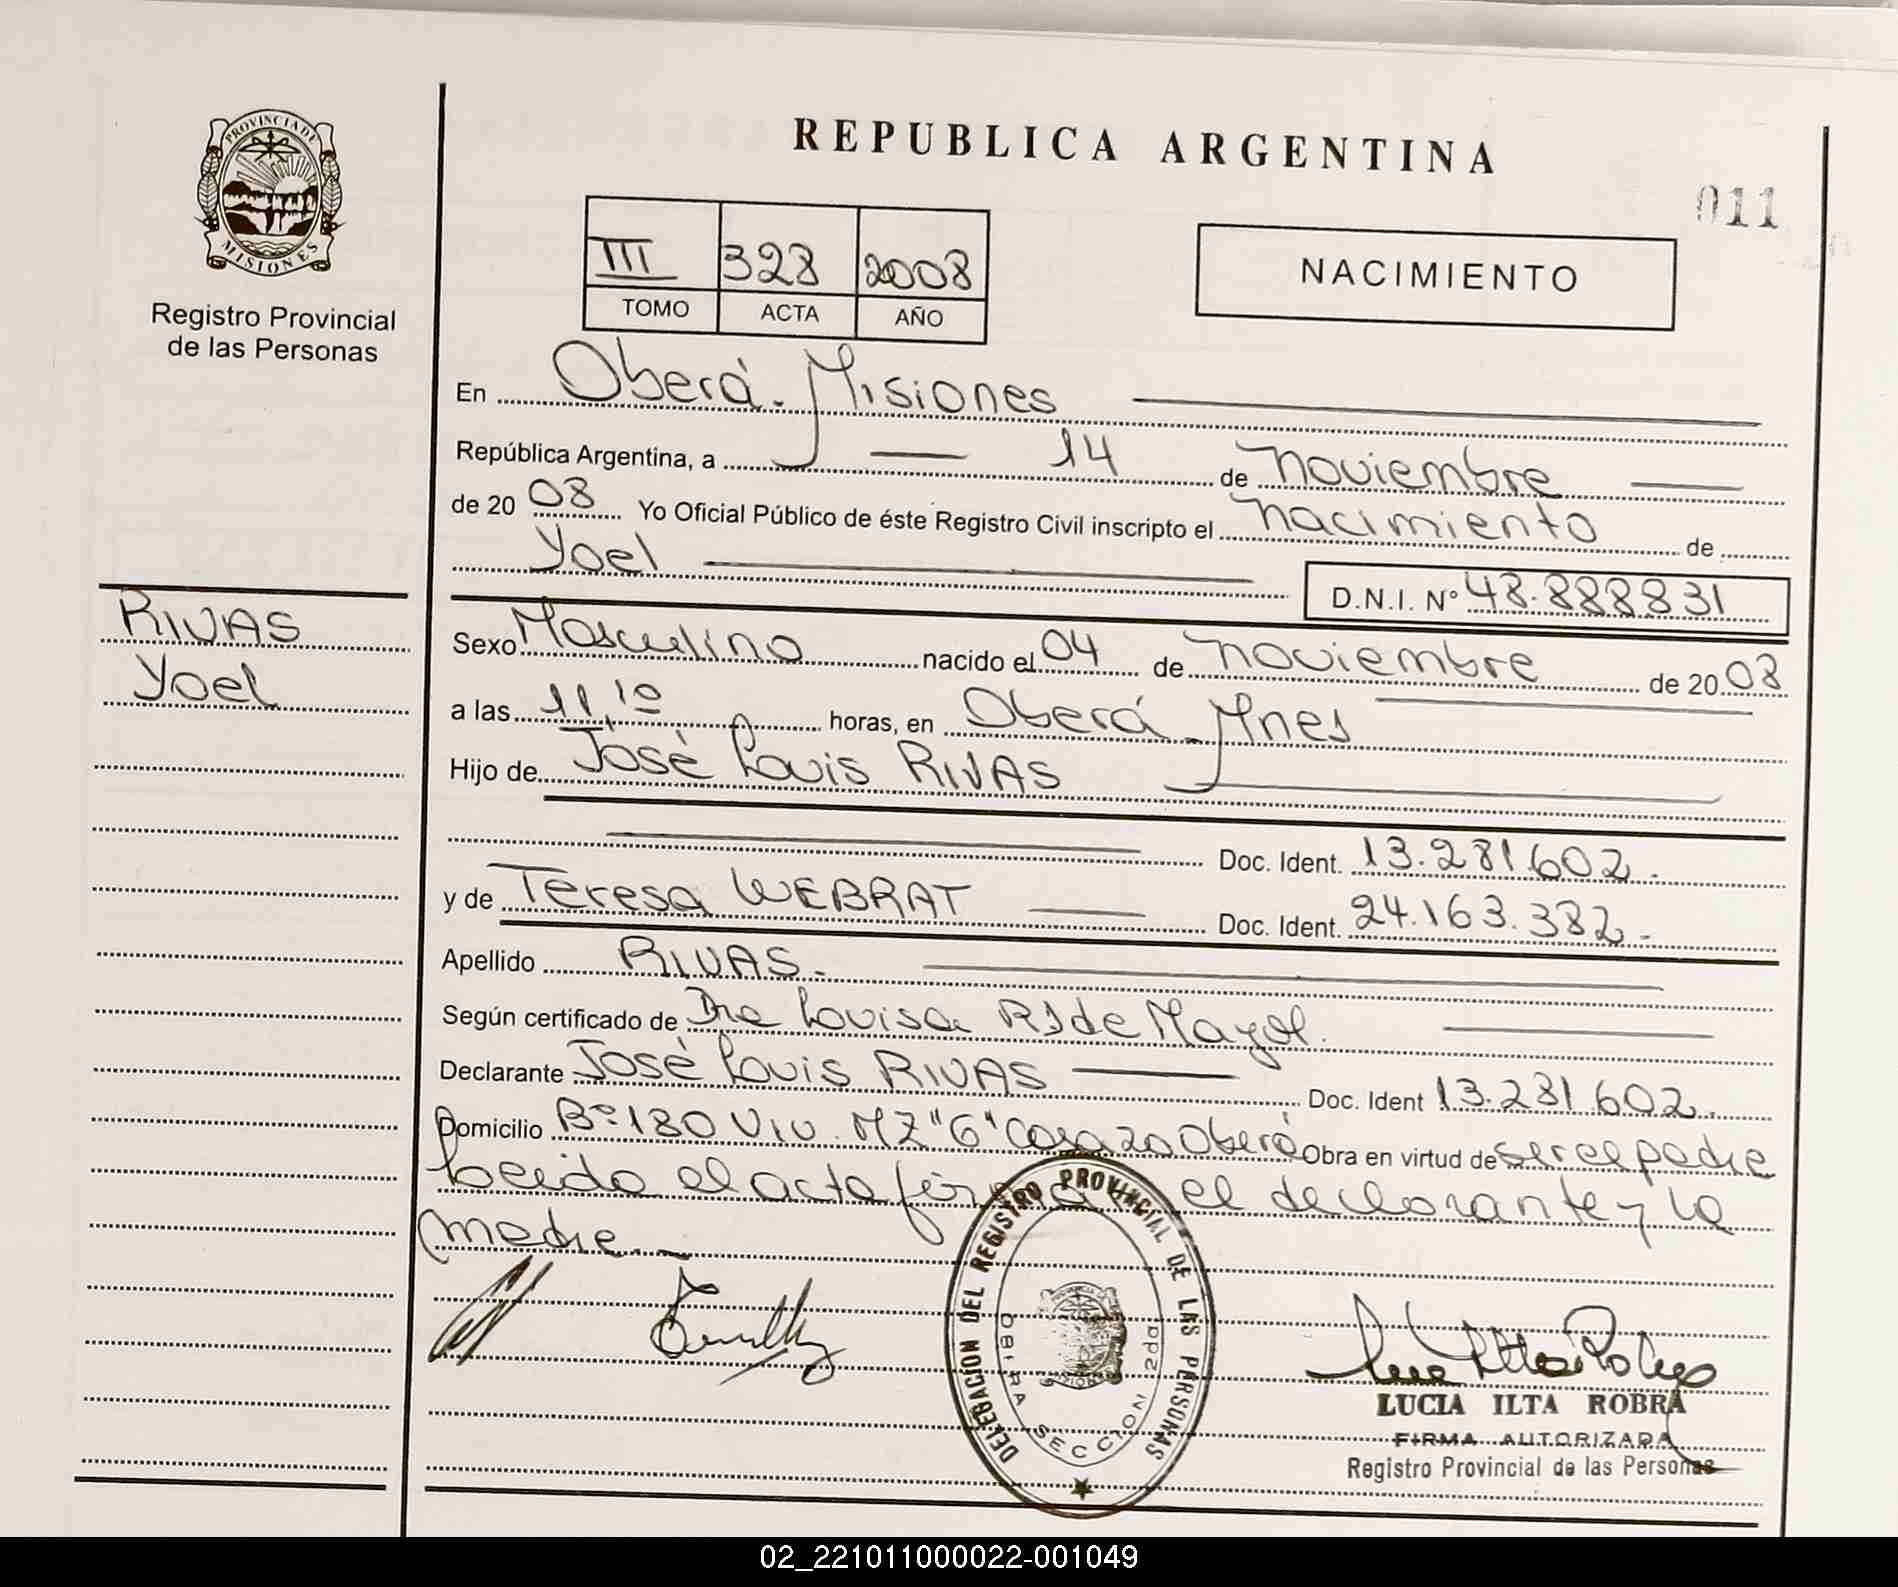 REPUBLICA ARGENTINA
011
PROVINCIA DE
MISIONES
Registro Provincial
de las Personas
III 328 2008
TOMO ACTA AÑO
NACIMIENTO
En Oberá - Misiones
República Argentina, a 14 de Noviembre
de 20 08 Yo Oficial Público de éste Registro Civil inscripto el Nacimiento de
Yoel
D.N.I. N° 48.888831
RIVAS
Yoel
Sexo Masculino nacido el 04 de Noviembre de 20 08
a las 11,10 horas, en Oberá - Mnes
Hijo de José Louis RIVAS
Doc. Ident. 13.281.602.
y de Teresa WEBRAT Doc. Ident. 24.163.382.
Apellido RIVAS.
Según certificado de Dra Louisa R de Mayol.
Declarante José Louis RIVAS Doc. Ident 13.281.602.
Domicilio B° 180 Viv. MZ "G" Casa 20 Oberá Obra en virtud de ser el padre
Leido el acta firma el declarante y la
madre.
DELEGACION DEL REGISTRO PROVINCIAL DE LAS PERSONAS
OBERA SECCION 2da
LUCIA ILTA ROBRA
FIRMA AUTORIZADA
Registro Provincial de las Personas
02_221011000022-001049